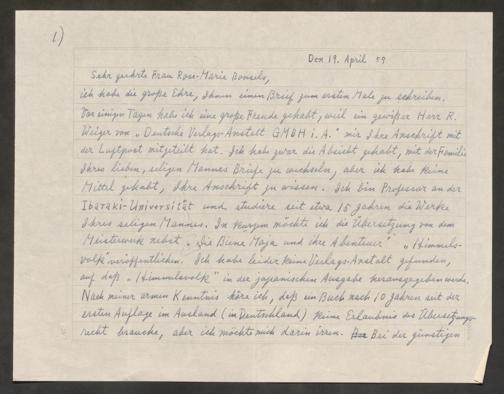 1)
Den 19. April 59
Sehr geehrte Frau Rose-Marie Bonsels,
ich habe die große Ehre, Ihnen einen Brief zum ersten Male zu schreiben.
Vor einigen Tagen habe ich eine große Freude gehabt, weil ein gewißer Herr R.
Weiger von „Deutsche Verlags-Anstalt GMBH i. A." mir Ihre Anschrift mit
der Luftpost mitgeteilt hat. Ich habe zwar die Absicht gehabt, mit der Familie
Ihres lieben, seligen Mannes Briefe zu wechseln, aber ich habe keine
Mittel gehabt, Ihre Anschrift zu wissen. Ich bin Professor an der
Ibaraki-Universität und studiere seit etwa 15 Jahren die Werke
Ihres seligen Mannes. In kurzem möchte ich die Übersetzung von dem
Meisterwerk nebst „Die Biene Maja und ihre Abenteuer" „Himmels-
volk" veröffentlichen. Ich habe leider keine Verlags-Anstalt gefunden,
auf daß „Himmelsvolk" in der japanischen Ausgabe herausgegeben werde.
Nach meiner armen Kenntnis höre ich, daß ein Buch nach 10 Jahren seit der
ersten Auflage im Ausland (in Deutschland) keine Erlaubnis des Übersetzungs-
recht brauche, aber ich möchte mich darin irren. Bei der günstigen